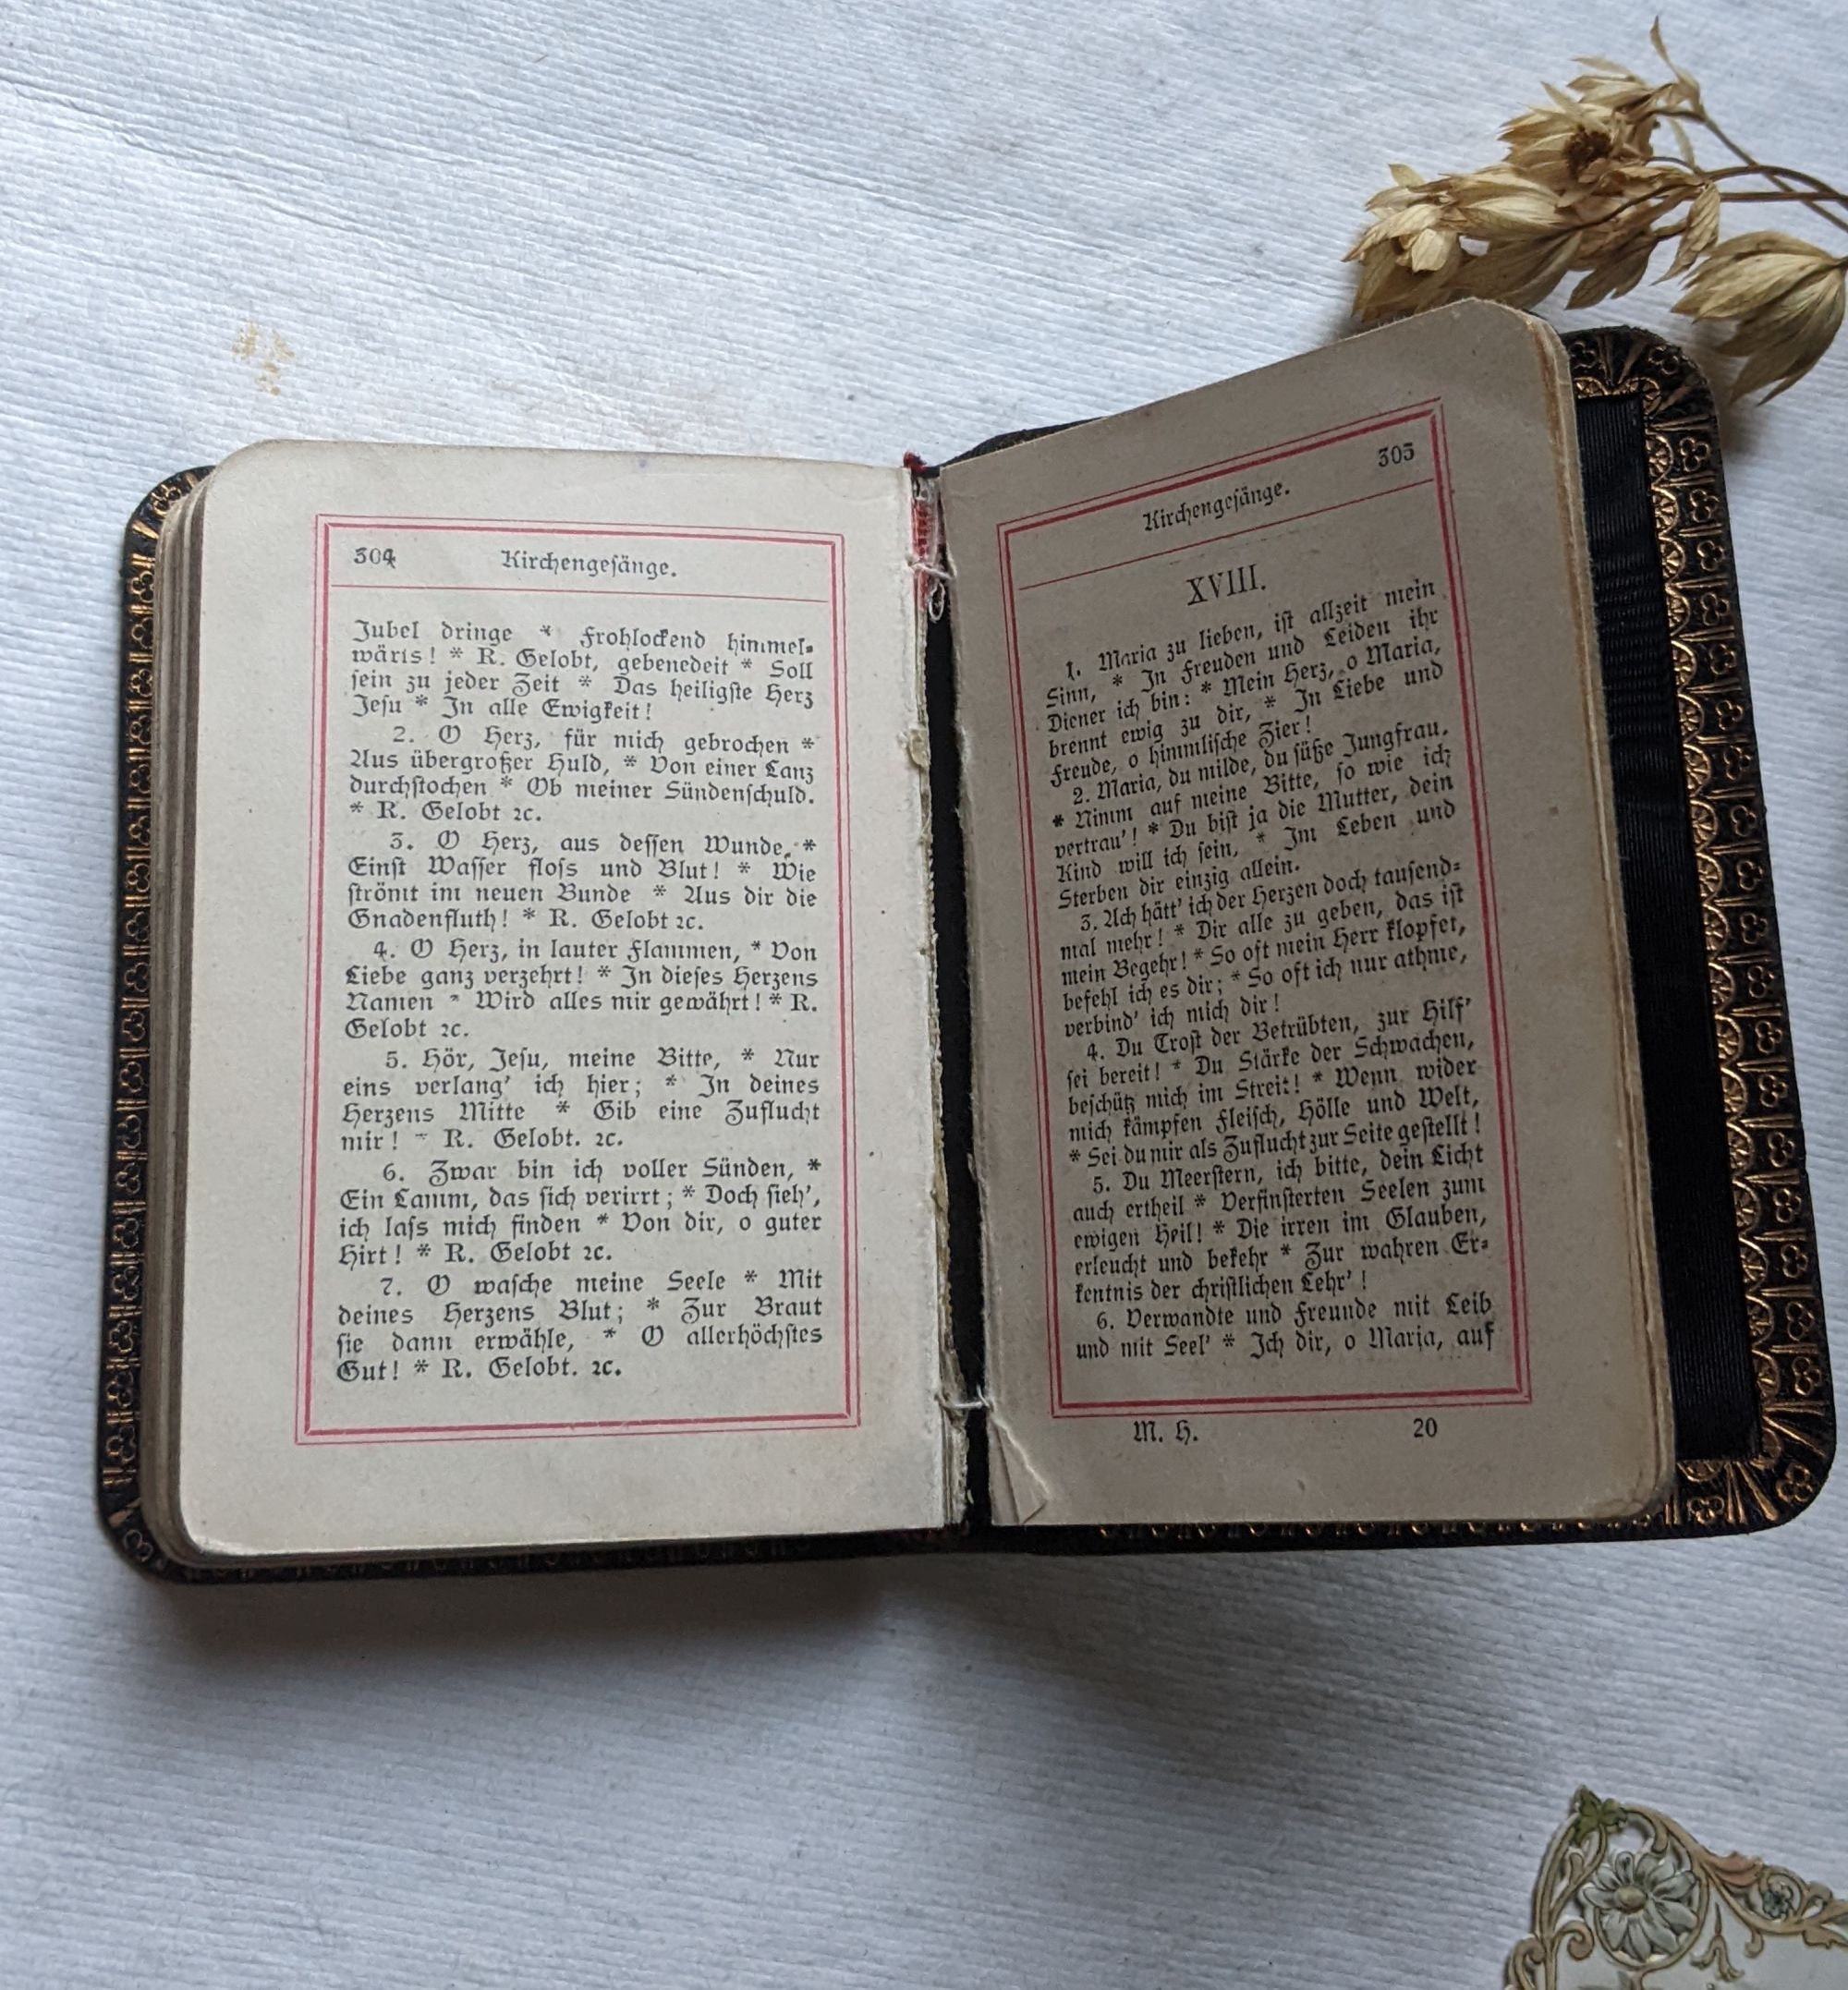 304 Kirchengeſänge.
Jubel dringe * Frohlockend himmel⸗
wärts! * R. Gelobt, gebenedeit * Soll
ſein zu jeder Zeit * Das heiligſte Herz
Jeſu * In alle Ewigkeit!
2. O Herz, für mich gebrochen *
Aus übergroßer Huld, * Von einer Lanz
durchſtochen * Ob meiner Sündenſchuld.
* R. Gelobt ꝛc.
3. O Herz, aus deſſen Wunde, *
Einſt Waſſer floſs und Blut! * Wie
ſtrömt im neuen Bunde * Aus dir die
Gnadenfluth! * R. Gelobt ꝛc.
4. O Herz, in lauter Flammen, * Von
Liebe ganz verzehrt! * In dieſes Herzens
Namen * Wird alles mir gewährt! * R.
Gelobt ꝛc.
5. Hör, Jeſu, meine Bitte, * Nur
eins verlang' ich hier; * In deines
Herzens Mitte * Gib eine Zuflucht
mir! * R. Gelobt. ꝛc.
6. Zwar bin ich voller Sünden, *
Ein Lamm, das ſich verirrt; * Doch ſieh',
ich laſs mich finden * Von dir, o guter
Hirt! * R. Gelobt ꝛc.
7. O waſche meine Seele * Mit
deines Herzens Blut; * Zur Braut
ſie dann erwähle, * O allerhöchſtes
Gut! * R. Gelobt. ꝛc.
Kirchengeſänge. 305
XVIII.
1. Maria zu lieben, iſt allzeit mein
Sinn, * In Freuden und Leiden ihr
Diener ich bin: * Mein Herz, o Maria,
brennt ewig zu dir, * In Liebe und
Freude, o himmliſche Zier!
2. Maria, du milde, du ſüße Jungfrau,
* Nimm auf meine Bitte, ſo wie ich
vertrau'! * Du biſt ja die Mutter, dein
Kind will ich ſein, * Im Leben und
Sterben dir einzig allein.
3. Ach hätt' ich der Herzen doch tauſend⸗
mal mehr! * Dir alle zu geben, das iſt
mein Begehr! * So oft mein Herr klopfet,
befehl ich es dir; * So oft ich nur athme,
verbind' ich mich dir!
4. Du Troſt der Betrübten, zur Hilf'
ſei bereit! * Du Stärke der Schwachen,
beſchütz mich im Streit! * Wenn wider
mich kämpfen Fleiſch, Hölle und Welt,
* Sei du mir als Zuflucht zur Seite geſtellt!
5. Du Meerſtern, ich bitte, dein Licht
auch ertheil * Verfinſterten Seelen zum
ewigen Heil! * Die irren im Glauben,
erleucht und bekehr * Zur wahren Er⸗
kentnis der chriſtlichen Lehr'!
6. Verwandte und Freunde mit Leib
und mit Seel' * Ich dir, o Maria, auf
M. H. 20